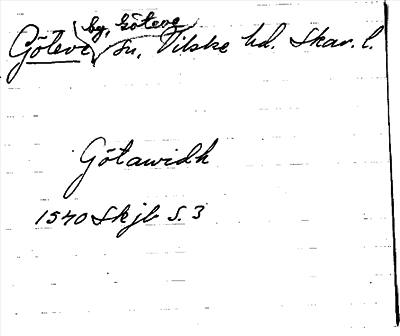 by, Göteve
Göteve sn, Vilske hd. Skar. l.
Götawidh
1540 Skjb S. 3